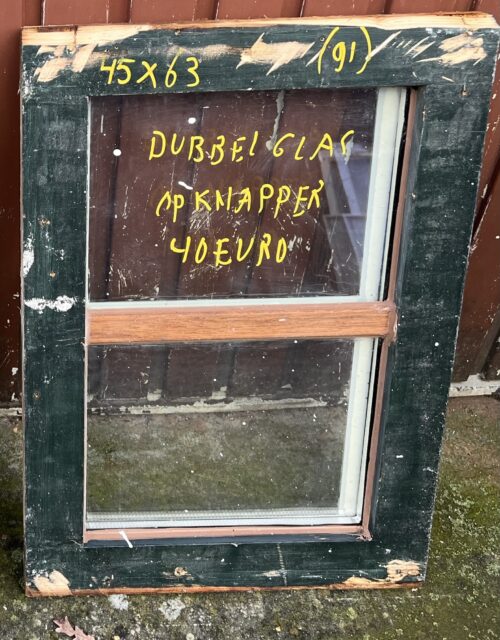 45X63 (91)
DUBBEL GLAS
OPKNAPPER
40 EURO